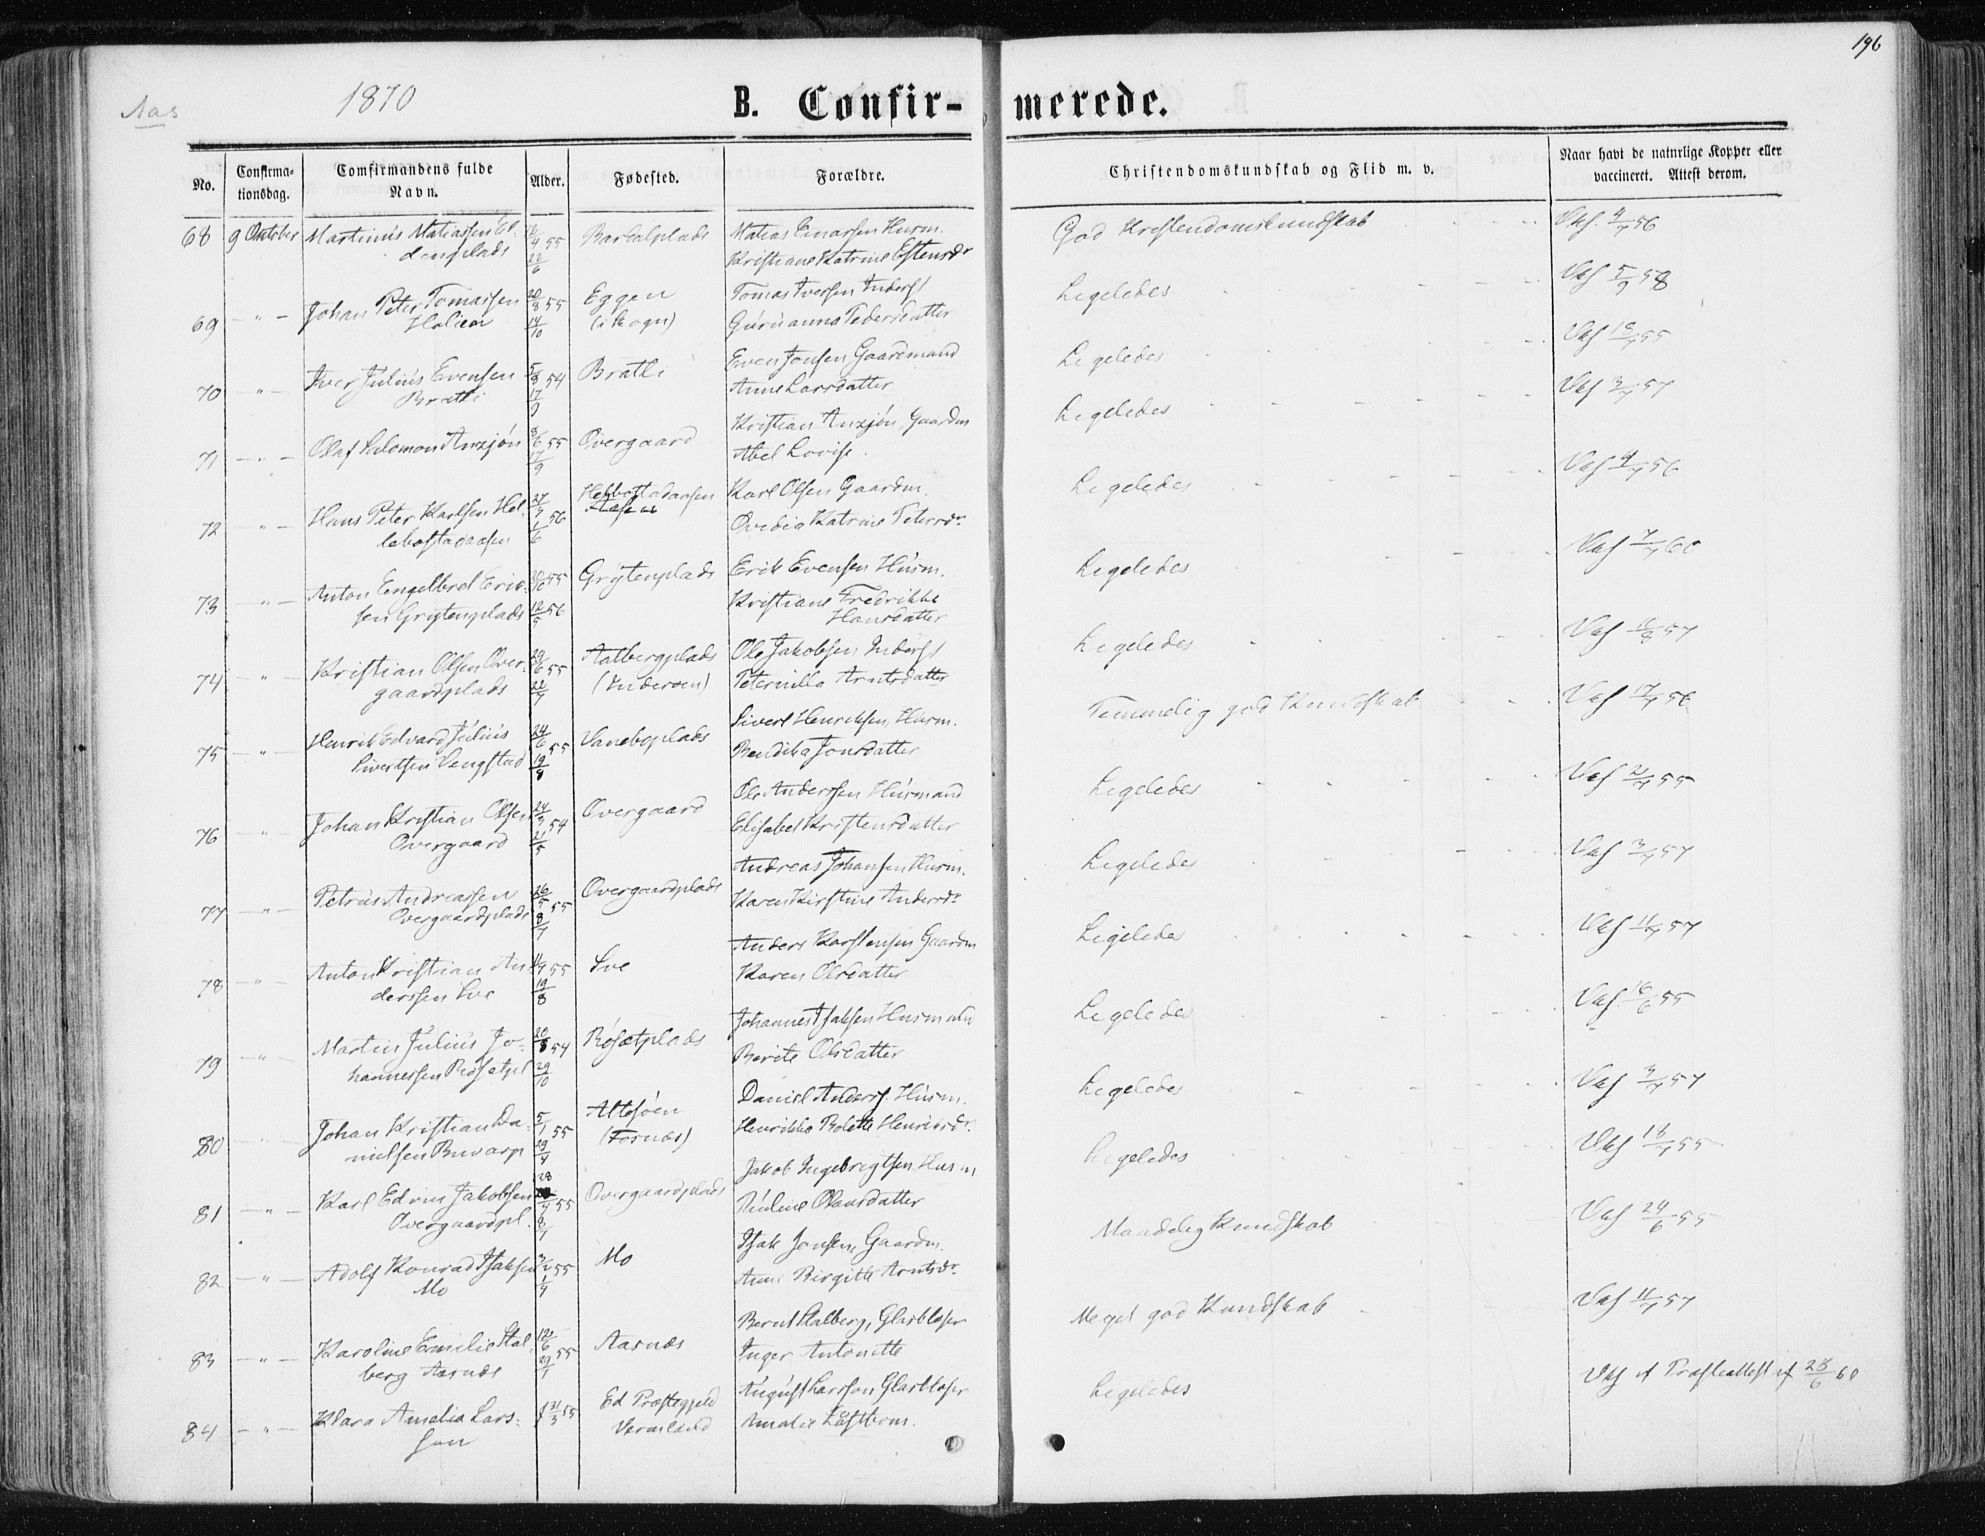 196
Aas
1870
B. Confir-merede.
No.
Confirma-
tionsdag.
Comfirmandens fulde
Navn.
Alder.
Fødested.
Forældre.
Christendomskundskab og Flid m. v.
Naar havt de naturlige Kopper eller
vaccineret. Attest derom.
68 9 Oktober Martinus Matiassen
55 Matias Einarsen Husm.
Kristiane Katrine Estensdr
God Kristendomskundskab
Vac. 4/7 56
69 Johan Peter Tomassen
55 Eggen
(i Skogn)
Tomas Iversen Inderst
Guruanna Pedersdatter
Ligeledes
Vac 5/9 58
70 Iver Julius Evensen
Bratli
5/8 54
17/9
Bratli
Even Jonsen Gaardmand
Anne Larsdatter
Ligeledes
55
71 Olaf Salomon Anzjøn
8/6 55
17/9
Overgaard
Kristian Anzjøn, Gaardm
Abel Lovise
Ligeledes
Vac 3/7 57
72 Hans Peter Karlsen Hel-
lebostadaasen
27/3
1/6 56
Hellebostadaasen
Karl Olsen Gaardm.
Ovedia Katrine Petersdr.
Ligeledes
Vac 56
73 Anton Engelbret Erik-
sen Grytenplads
55
12/5 56
Grytenplads
Erik Evensen Husm.
Kristiane Fredrikke
Hansdatter
Ligeledes
Vac 7/7 60
74 Kristian Olsen Over-
gaardplads
29/6 55
22/7
Aalbergplads
(Inderøen)
Ole Jakobsen Inderst
Peternilla Arntsdatter
Ligeledes
Vac 57
75 Henrik Edvard Julius
Sivertsen Vengstad
24/6 55
19/8
Vaneboplads
Sivert Henriksen, Husm.
Bendika Jonsdatter
Temmelig god Kundskab
Vac 17/7 56
76 Johan Kristian Olsen
Overgaard
24/3 54
21/5
Overgaard
Ole Anderssen Husmand
Elisabet Kristensdatter
Ligeledes
Vac 55
77 Petrus Andreassen
Overgaardplads
26/5 55
8/7
Overgaardplads
Andreas Johansen Husm.
Karen Kirstine Andersdr.
Ligeledes
Vac 3/7 57
78 Anton Kristian An-
derssen Sve
55
19/8
Sve
Anders Karstensen Gaardm
Karen Olsdatter
Ligeledes
Vac 11/7 57
79 Martin Julius Jo-
hannessen Røsetpl
20/8 54
29/10
Røsetplads
Johannes Isaksen Husmand
Berite Olsdatter
Ligeledes
Vac. 16/6 55
80 Johan Kristian Da-
nielsen Buvarp
5/1 55
29/4
(Fosnæs)
Daniel Anders. Husm.
Henrikke Bolette Henriksdr.
Ligeledes
Vac 3/7 57
81 Karl Edvin Jakobsen
Overgaardpl.
28
55
8/7
Overgaardplads
Jakob Ingebrigtsen Husm
Pauline Olausdatter
Ligeledes
Vac 18/7 55
82 Adolf Konrad Isaksen
Mo
55
1/4
Mo
Isak Jonsen, Gaardm.
Anne Birgitte Arntsdr.
Maadelig Kundskab
Vac 24/6 55
83 Karoline Emilie Stal-
berg Aarnæs
55
Aarnæs
Bernt Stalberg, Glasblaser
Inger Antonette
Meget god Kundskab
Vac 11/7 57
84 Klara Amalia Lars-
son
55
Ed Præstegjeld
Vermland
August Larsson Glasblaser
Amalie Låftbom.
Ligeledes
Vac if Præsteattest af 28/6 60